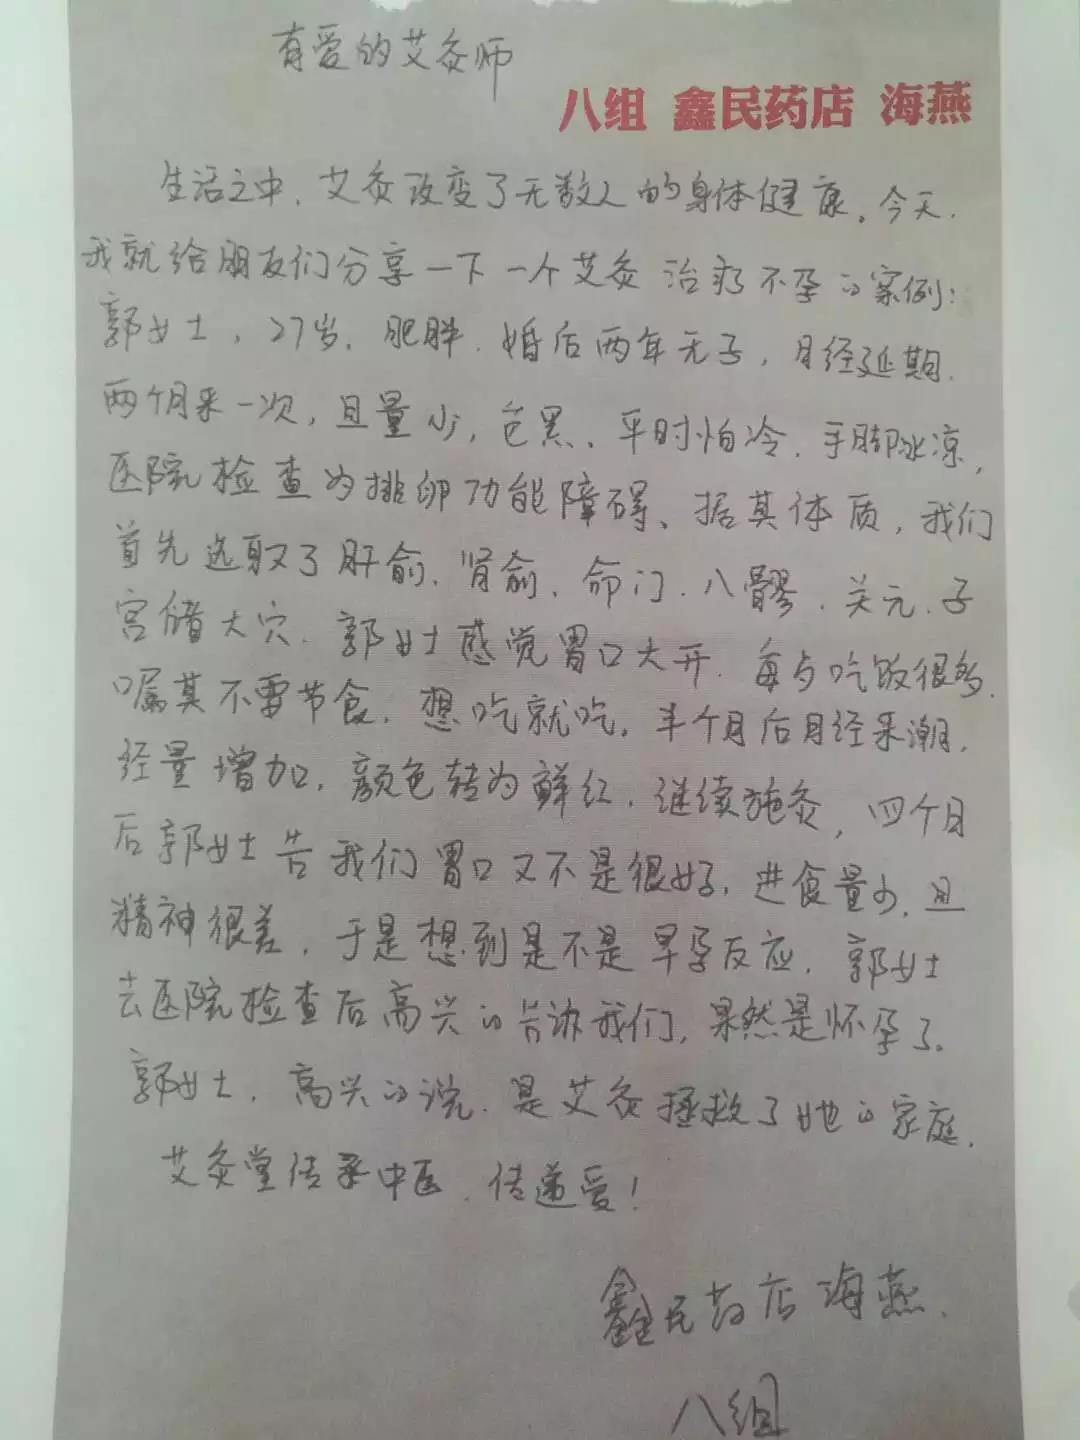 有爱的艾灸师
八组 鑫民药店 海燕
生活之中，艾灸改变了无数人的身体健康。今天，
我就给朋友们分享一下一个艾灸治疗不孕的案例：
郭女士，27岁，肥胖，婚后两年无子，月经延期，
两个月来一次，且量少，色黑、平时怕冷，手脚冰凉，
医院检查为排卵功能障碍、据其体质，我们
首先选取了肝俞、肾俞、命门、八髎、关元、子
宫储大穴，郭女士感觉胃口大开，每与吃饭很多，
嘱其不需节食，想吃就吃，半个月后月经来潮，
经量增加，颜色转为鲜红，继续施灸，四个月
后郭女士告我们胃口又不是很好，进食量少，且
精神很差，于是想到是不是早孕反应，郭女士
去医院检查后高兴的告诉我们，果然是怀孕了。
郭女士，高兴的说，是艾灸拯救了她的家庭，
艾灸堂传承中医，传递爱！
鑫民药店海燕，
八组